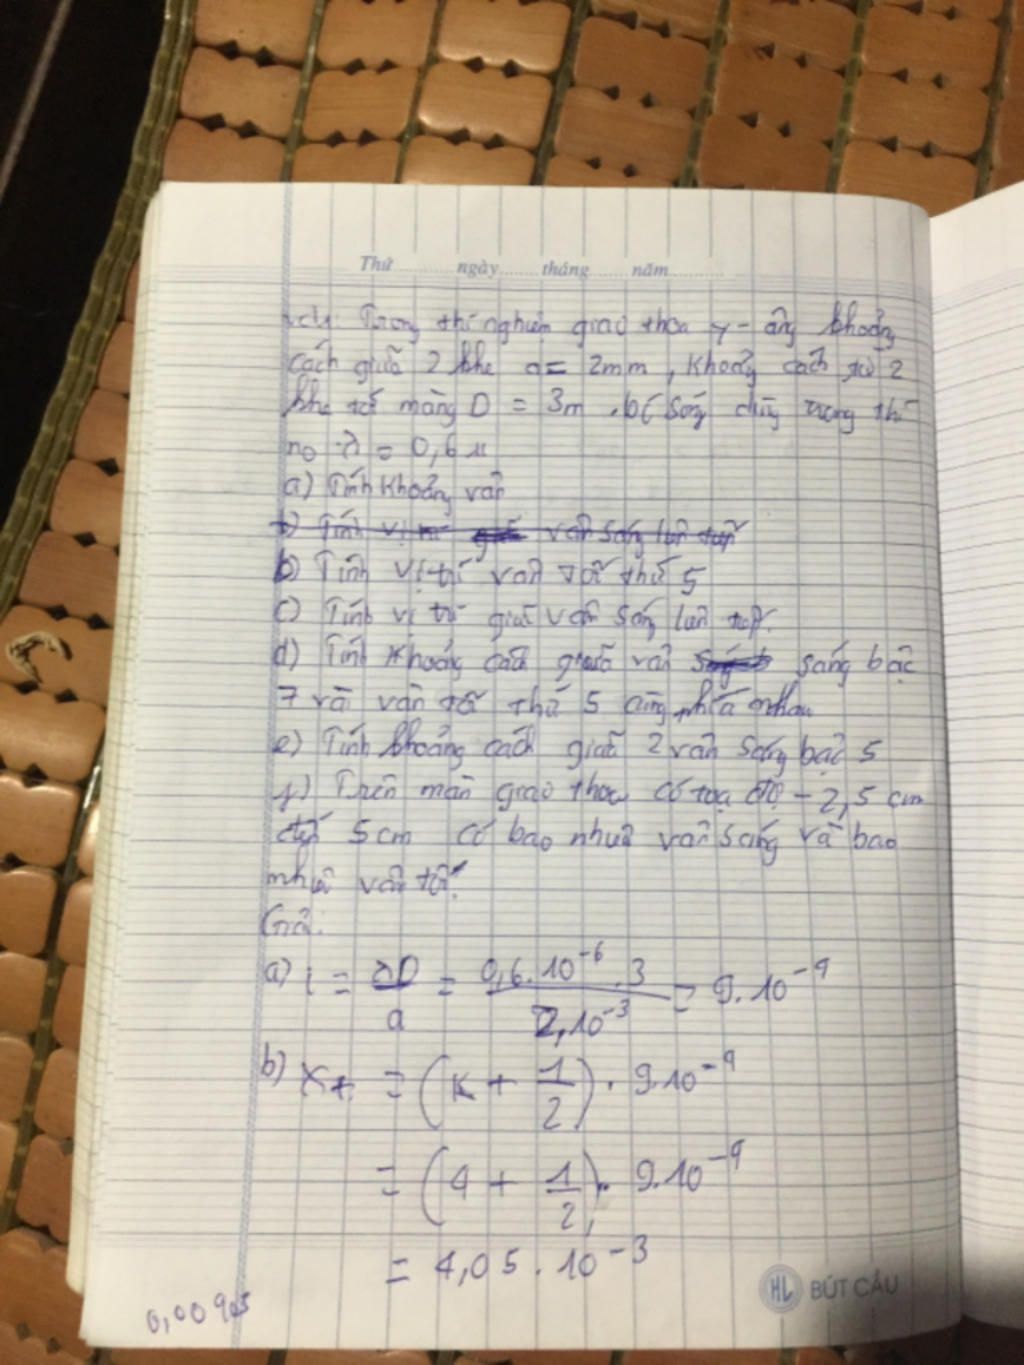 Thứ ngày tháng năm
vd4: Trong thí nghiệm giao thoa y-âng khoảng
cách giữa 2 khe a = 2mm, khoảng cách từ 2
khe tới màng D = 3m. bc sóng dùng trong thí
no λ = 0,6 μ
a) Tính khoảng vân
b) Tính vị trí vân sáng lần
b) Tính vị trí vân tối thứ 5
c) Tính vị trí giữa vân sáng lần
d) Tính khoảng cách giữa vân sáng bậc
7 và vân tối thứ 5 cùng phía nhau
e) Tính khoảng cách giữa 2 vân sáng bậc 5
f) Trên màn giao thoa có tọa độ -2,5 cm
đến 5cm có bao nhiêu vân sáng và bao
nhiêu vân tối.
Giải:
a) i = λD/a = 0,6.10⁻⁶.3/2,10⁻³ = 9.10⁻⁴
b) xt = (k + 1/2). 9.10⁻⁴
= (4 + 1/2). 9.10⁻⁴
= 4,05.10⁻³
HL BÚT CẦU